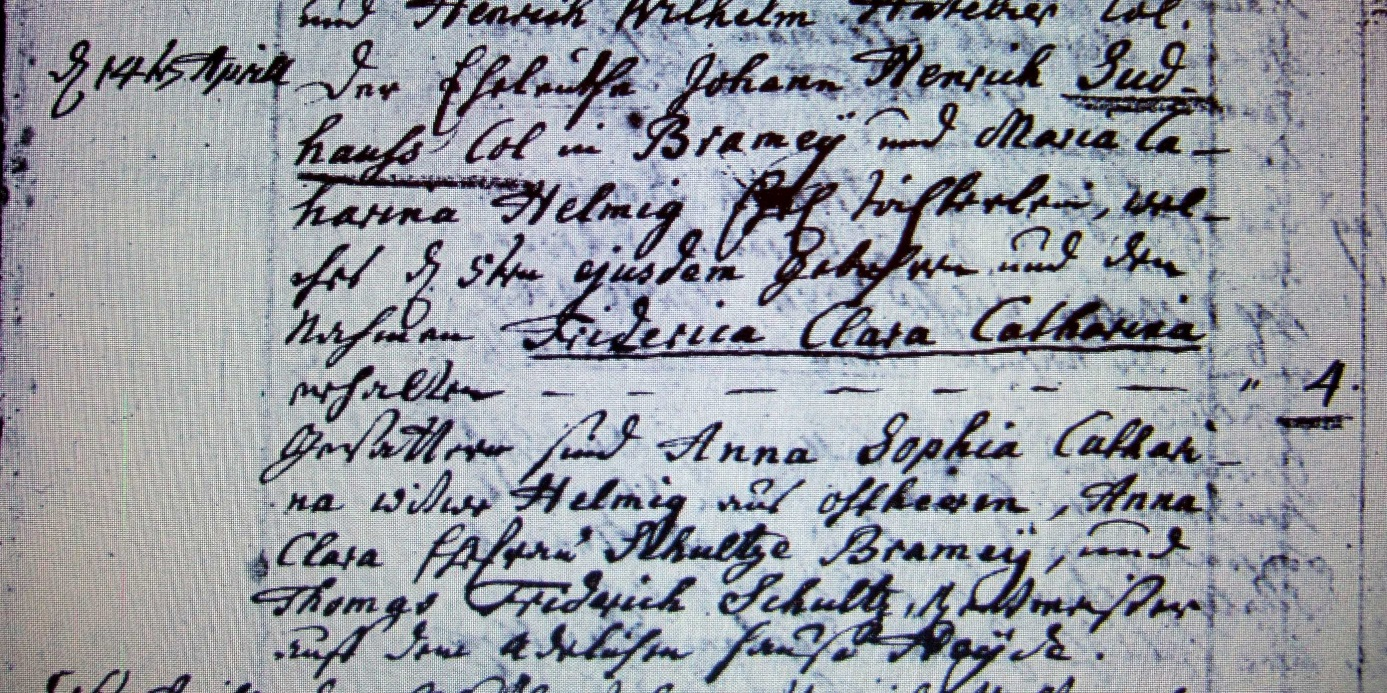 und Henrich Wilhelm Col.
d 14ten Aprill Der Eheleüthe Johann Henrich Sud-
hauss Col in Brameÿ und Maria Ca-
tharina Helmig Ehel töchterlein, wel-
ches d 5ten ejusdem gebohren und den
Nahmen Friderica Clara Catharina
erhalten - - - - - - - " 4.
Gevattern sind Anna Sophia Cathari-
na witwe Helmig aus ostheeren, Anna
Clara Ehefrau Schultze Brameÿ, und
Thomas Friderich Schultz, Rentmeister
auff dem adelichen hause Heÿde.